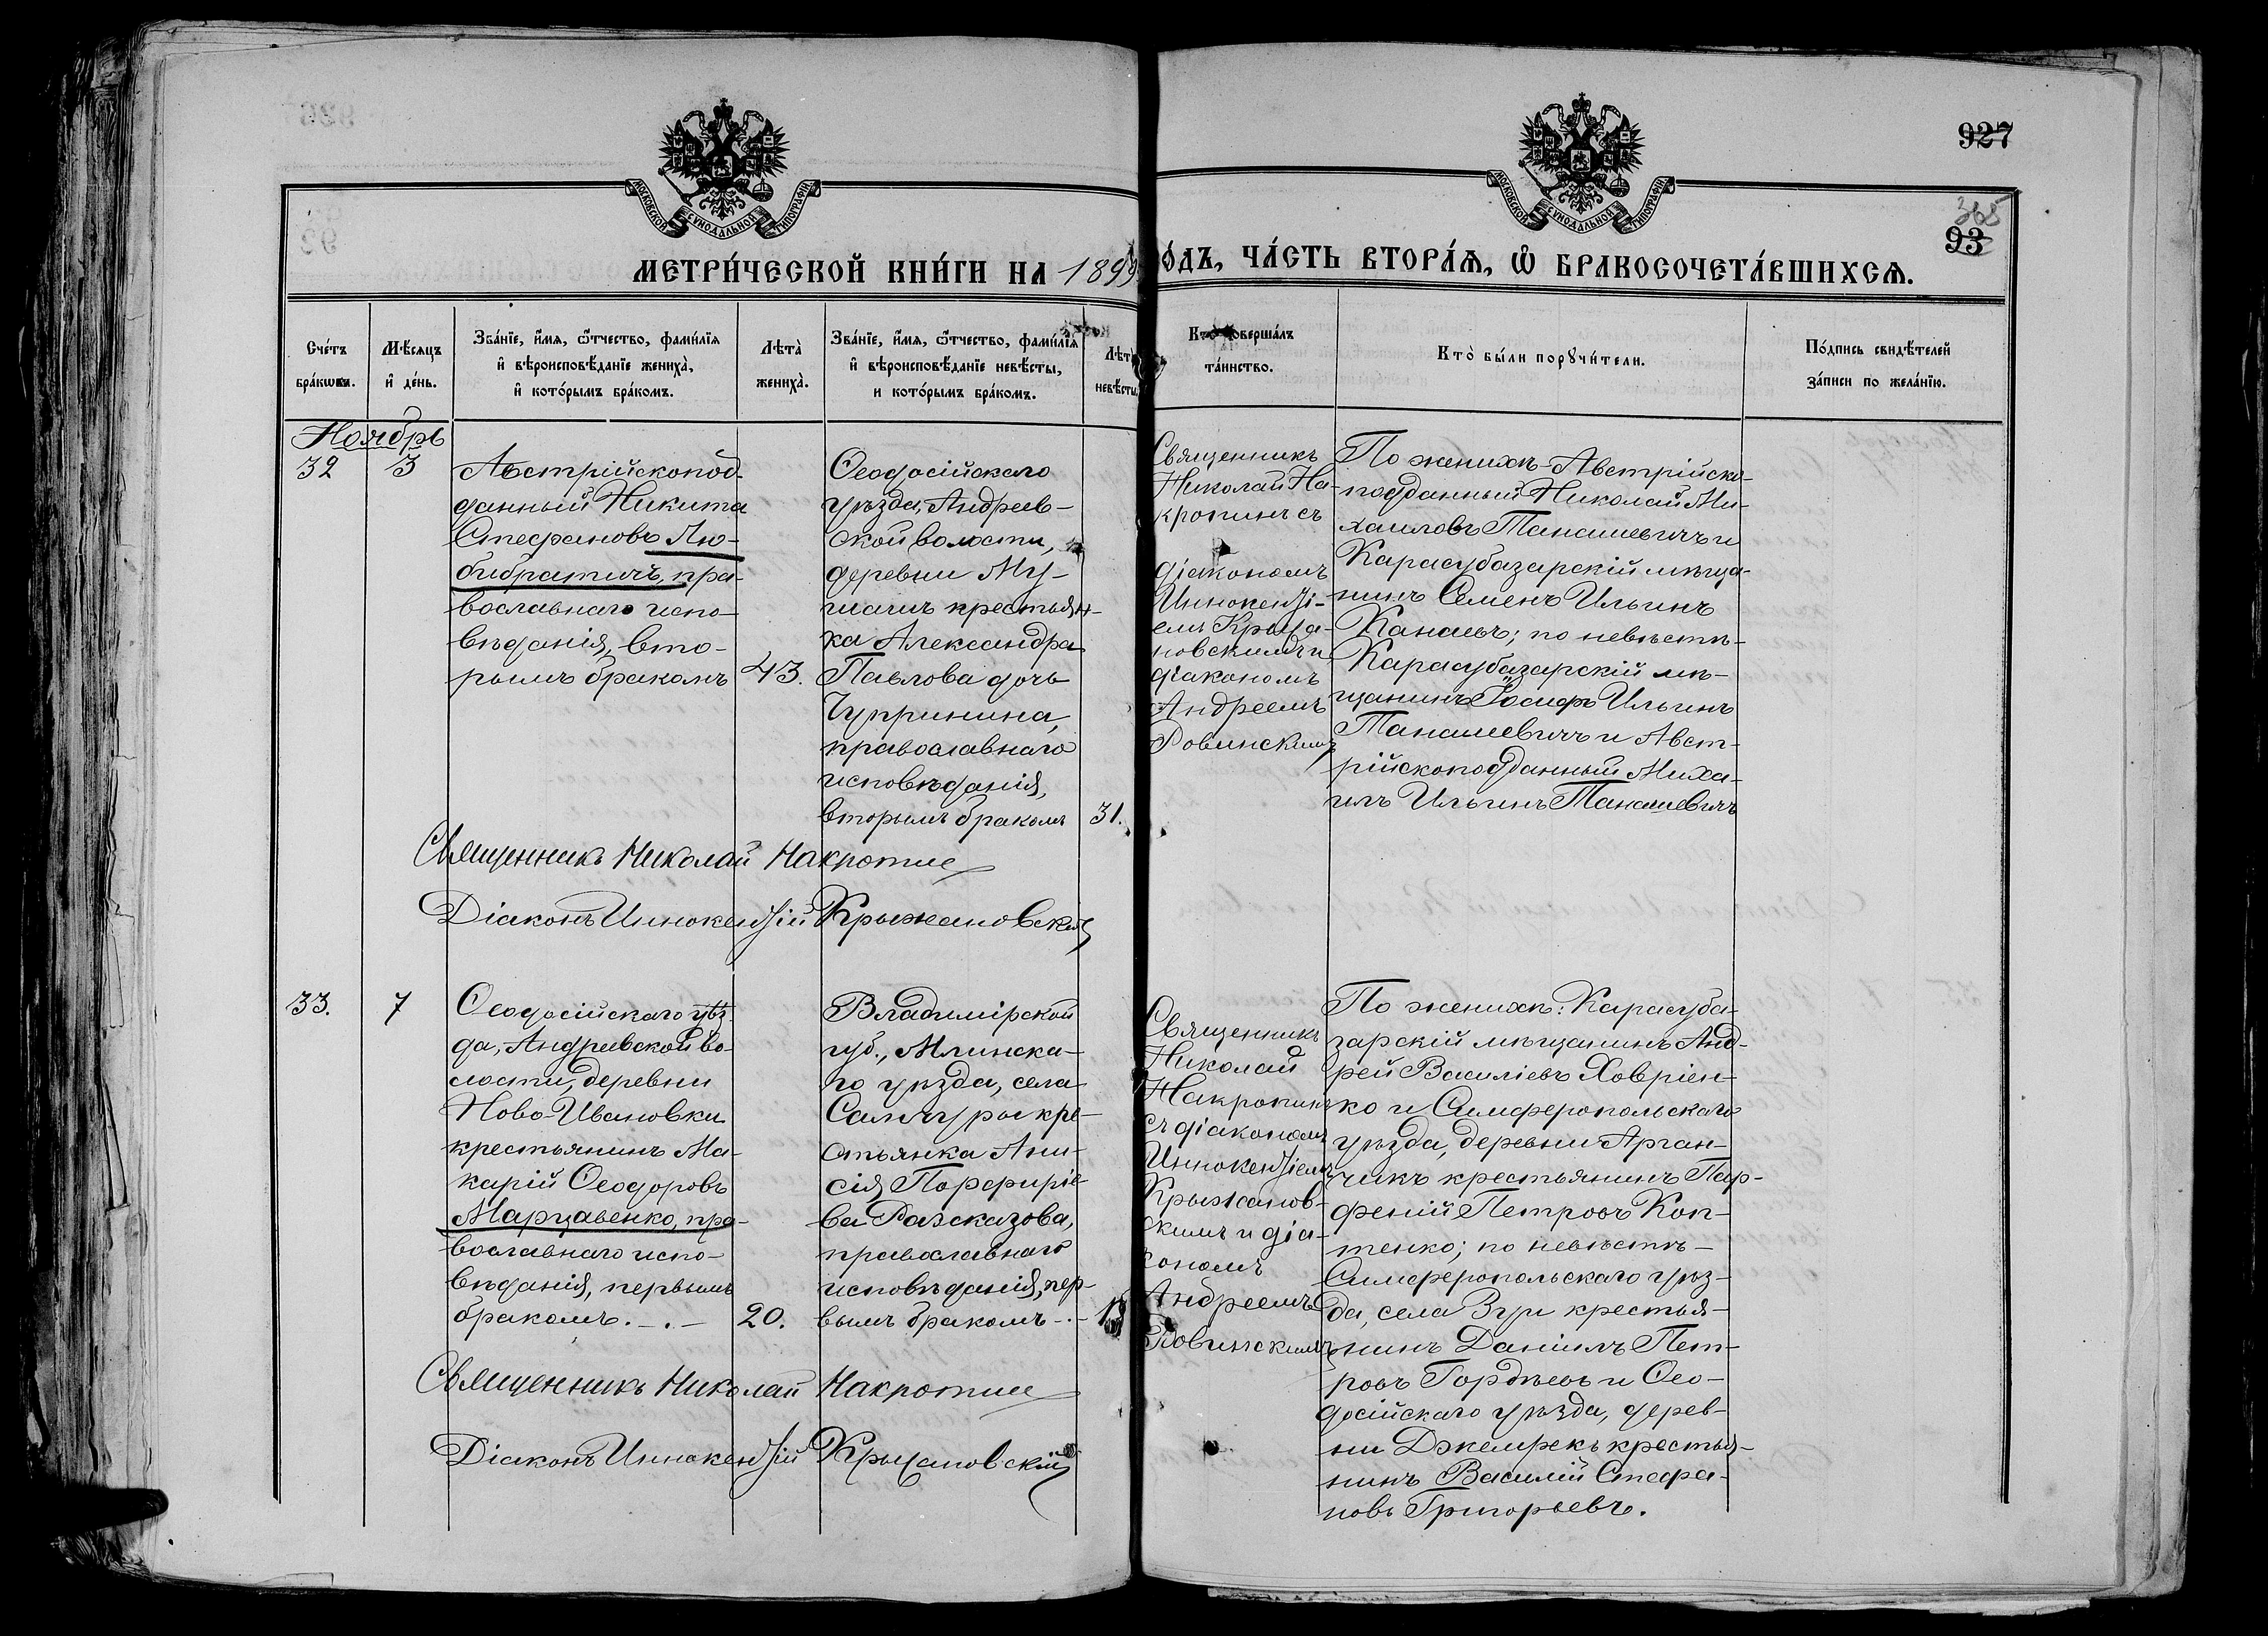 927
365
93
МОСКОВСКОЙ СУНОДАЛЬНОЙ ТИПОГРАФІИ
МОСКОВСКОЙ СУНОДАЛЬНОЙ ТИПОГРАФІИ
МЕТРИ́ЧЕСКОЙ КНИ́ГИ НА 1899
О́ДЪ, ЧА́СТЬ ВТОРА́Я, Ѡ БРАКОСОЧЕТА́ВШИХСЯ.
Сче́тъ бра́кѡвъ.
Мѣ́сяцъ и҆ де́нь.
Зва́нїе, и҆́мя, ѻ҆́тчество, фами́лїя
и҆ вѣроисповѣ́данїе жениха̀,
и҆ кото́рымъ бра́комъ.
Лѣта̀ жениха̀.
Зва́нїе, и҆́мя, ѻ҆́тчество, фами́лїя
и҆ вѣроисповѣ́данїе невѣ́сты,
и кото́рымъ бра́комъ.
Лѣта̀ невѣ́сты
Кто̀ соверша́лъ
та́инство.
Кто̀ бы́ли порꙋчи́тели.
По́дпись свидѣ́телей
за́писи по жела́нїю.
Ноябрь
32
3
Австрійскопод-
данный Никита
Стефановъ Лю-
бибратичъ, пра-
вославнаго испо-
вѣданія, вто-
рымъ бракомъ
43.
Ѳеодосійскаго
уѣзда, Андреев-
ской волости,
деревни Му-
шашъ крестьян-
ка Александра
Павлова дочь
Чупринина,
православнаго
исповѣданія,
вторымъ бракомъ
31.
Священникъ
Николай На-
кропинъ съ
діакономъ
Иннокенті-
емъ Крыжа-
новскимъ и
діакономъ
Андреемъ
Ровинскимъ
По женихѣ Австрійско-
подданный Николай Ми-
хаиловъ Танашевичъ и
Карасубазарскій мѣща-
нинъ Семенъ Ильинъ
Канаевъ; по невѣстѣ-
Карасубазарскій мѣ-
щанинъ Іосифъ Ильинъ
Танашевичъ и Авст-
рійскоподданный Миха-
илъ Ильинъ Танашевичъ
Священникъ Николай
Діаконъ Иннокентій Крыжановскій
33.
7
Ѳеодосійскаго уѣз-
да, Андреевской во-
лости, деревни
Ново-Ивановки
крестьянинъ Ма-
карій Ѳеодоровъ
Марцавенко, пра-
вославнаго испо-
вѣданія, первымъ
бракомъ. -.-
20.
Владимірской
губ.,
го уѣзда, села
кре-
стьянка Ани-
сія Порфиріе-
ва Разсказова,
православнаго
исповѣданія, пер-
вымъ бракомъ -.-
18
Священникъ
Николай
Накропинъ
съ діакономъ
Иннокентіемъ
Крыжанов-
скимъ и діа-
кономъ
Андреемъ
Ровинскимъ
По женихѣ: Карасуба-
зарскій мѣщанинъ Анд-
рей Василіевъ Ховріен-
ко и Симферопольскаго
уѣзда, деревни Арган-
чикъ крестьянинъ Пар-
феній Петровъ Коп-
тенко; по невѣстѣ-
Симферопольскаго уѣз-
да, села Зуи крестья-
нинъ Даніилъ Пет-
ровъ Гордѣевъ и Ѳео-
досійскаго уѣзда, дерев-
ни Джемрекъ крестья-
нинъ Василій Стефа-
новъ Григорьевъ.
Священникъ Николай
Діаконъ Иннокентій Крыжановскій